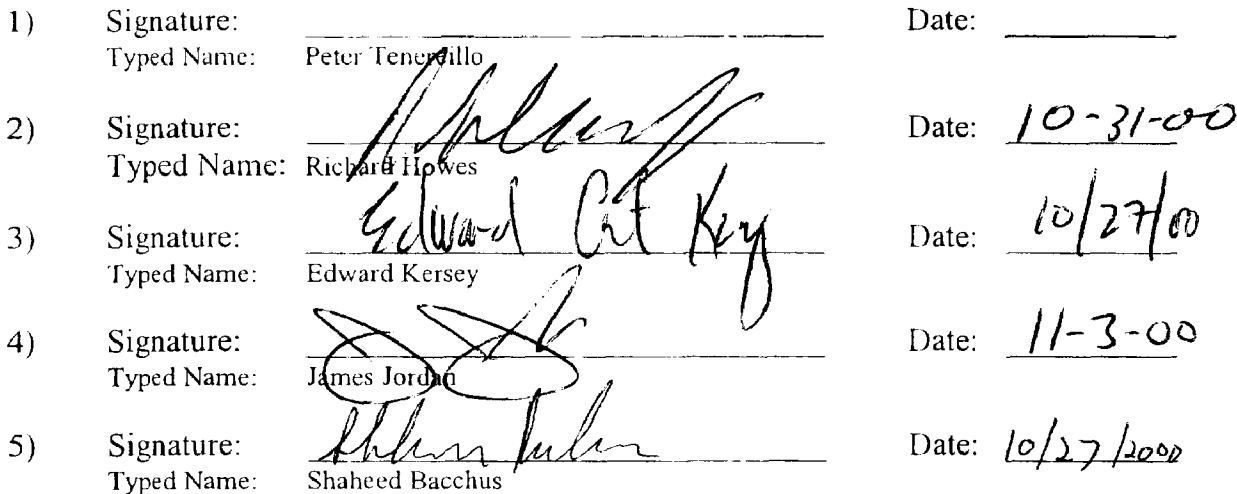 1) Signature: Date:
Typed Name: Peter Tenereillo
2) Signature: Date: 10-31-00
Typed Name: Richard Howes
3) Signature: Edward Date: 10/27/00
Typed Name: Edward Kersey
4) Signature: Date: 11-3-00
Typed Name: James Jordan
5) Signature: Date: 10/27/2000
Typed Name: Shaheed Bacchus